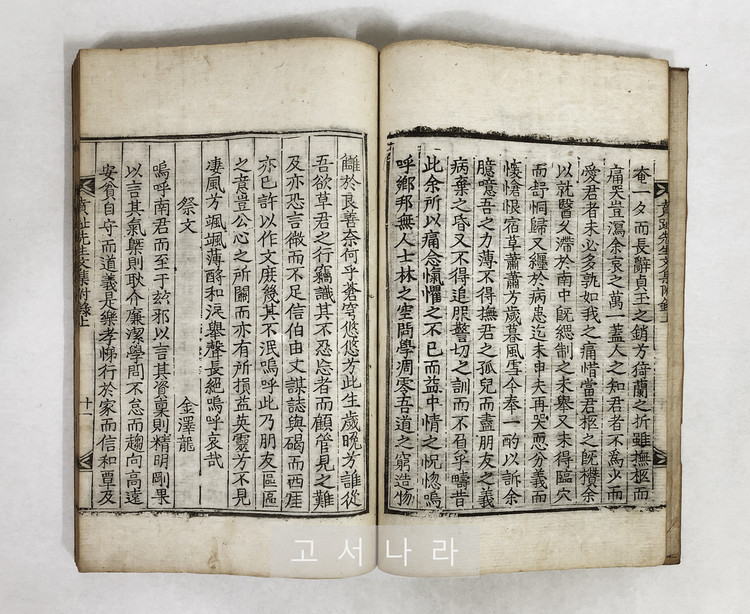 賁趾先生文集附錄上
奄一夕而長辭貞玉之銷方猗蘭之折雖撫柩而
痛哭豈瀉余哀之萬一蓋人之知君者不爲少而
愛君者未必多孰如我之痛惜當君柩之旣欑余
以就醫久滯於南中旣緦制之未舉又未得區穴
而慟歸又纏於病患迄未申夫再哭分義而
懷愴恨宿草蕭蕭方歲暮風雪今奉一酹以訴余
臆噫吾之力薄不得撫君之孤兒而盡朋友之義
病棄之昏又不得追服警切之訓而不負乎疇昔
此余所以痛念愾懼之不已而益中情之怳惚嗚
呼鄉邦無人士林之空問學凋零吾道之窮造物
讎於良善奈何乎蒼穹悠悠方此生歲晚方誰從
吾欲草君之行竊識其不忍忘者而顧管見之難
及亦恐言微而不足信伯由丈謀誌與碣而西涯
亦已許以作文庶幾其不泯嗚呼此乃朋友區區
之意豈公心之所關而亦有所損益英靈方不見
凄風方颯颯薄酹和淚舉聲長絕嗚呼哀哉
祭文 金澤龍
嗚呼南君而至于玆邪以言其資稟則精明剛果
以言其氣槩則耿介廉潔學問不怠而趨向高遠
安貧自守而道義是樂孝悌行於家而信和覃及
賁趾先生文集附錄上 十一
고서나라